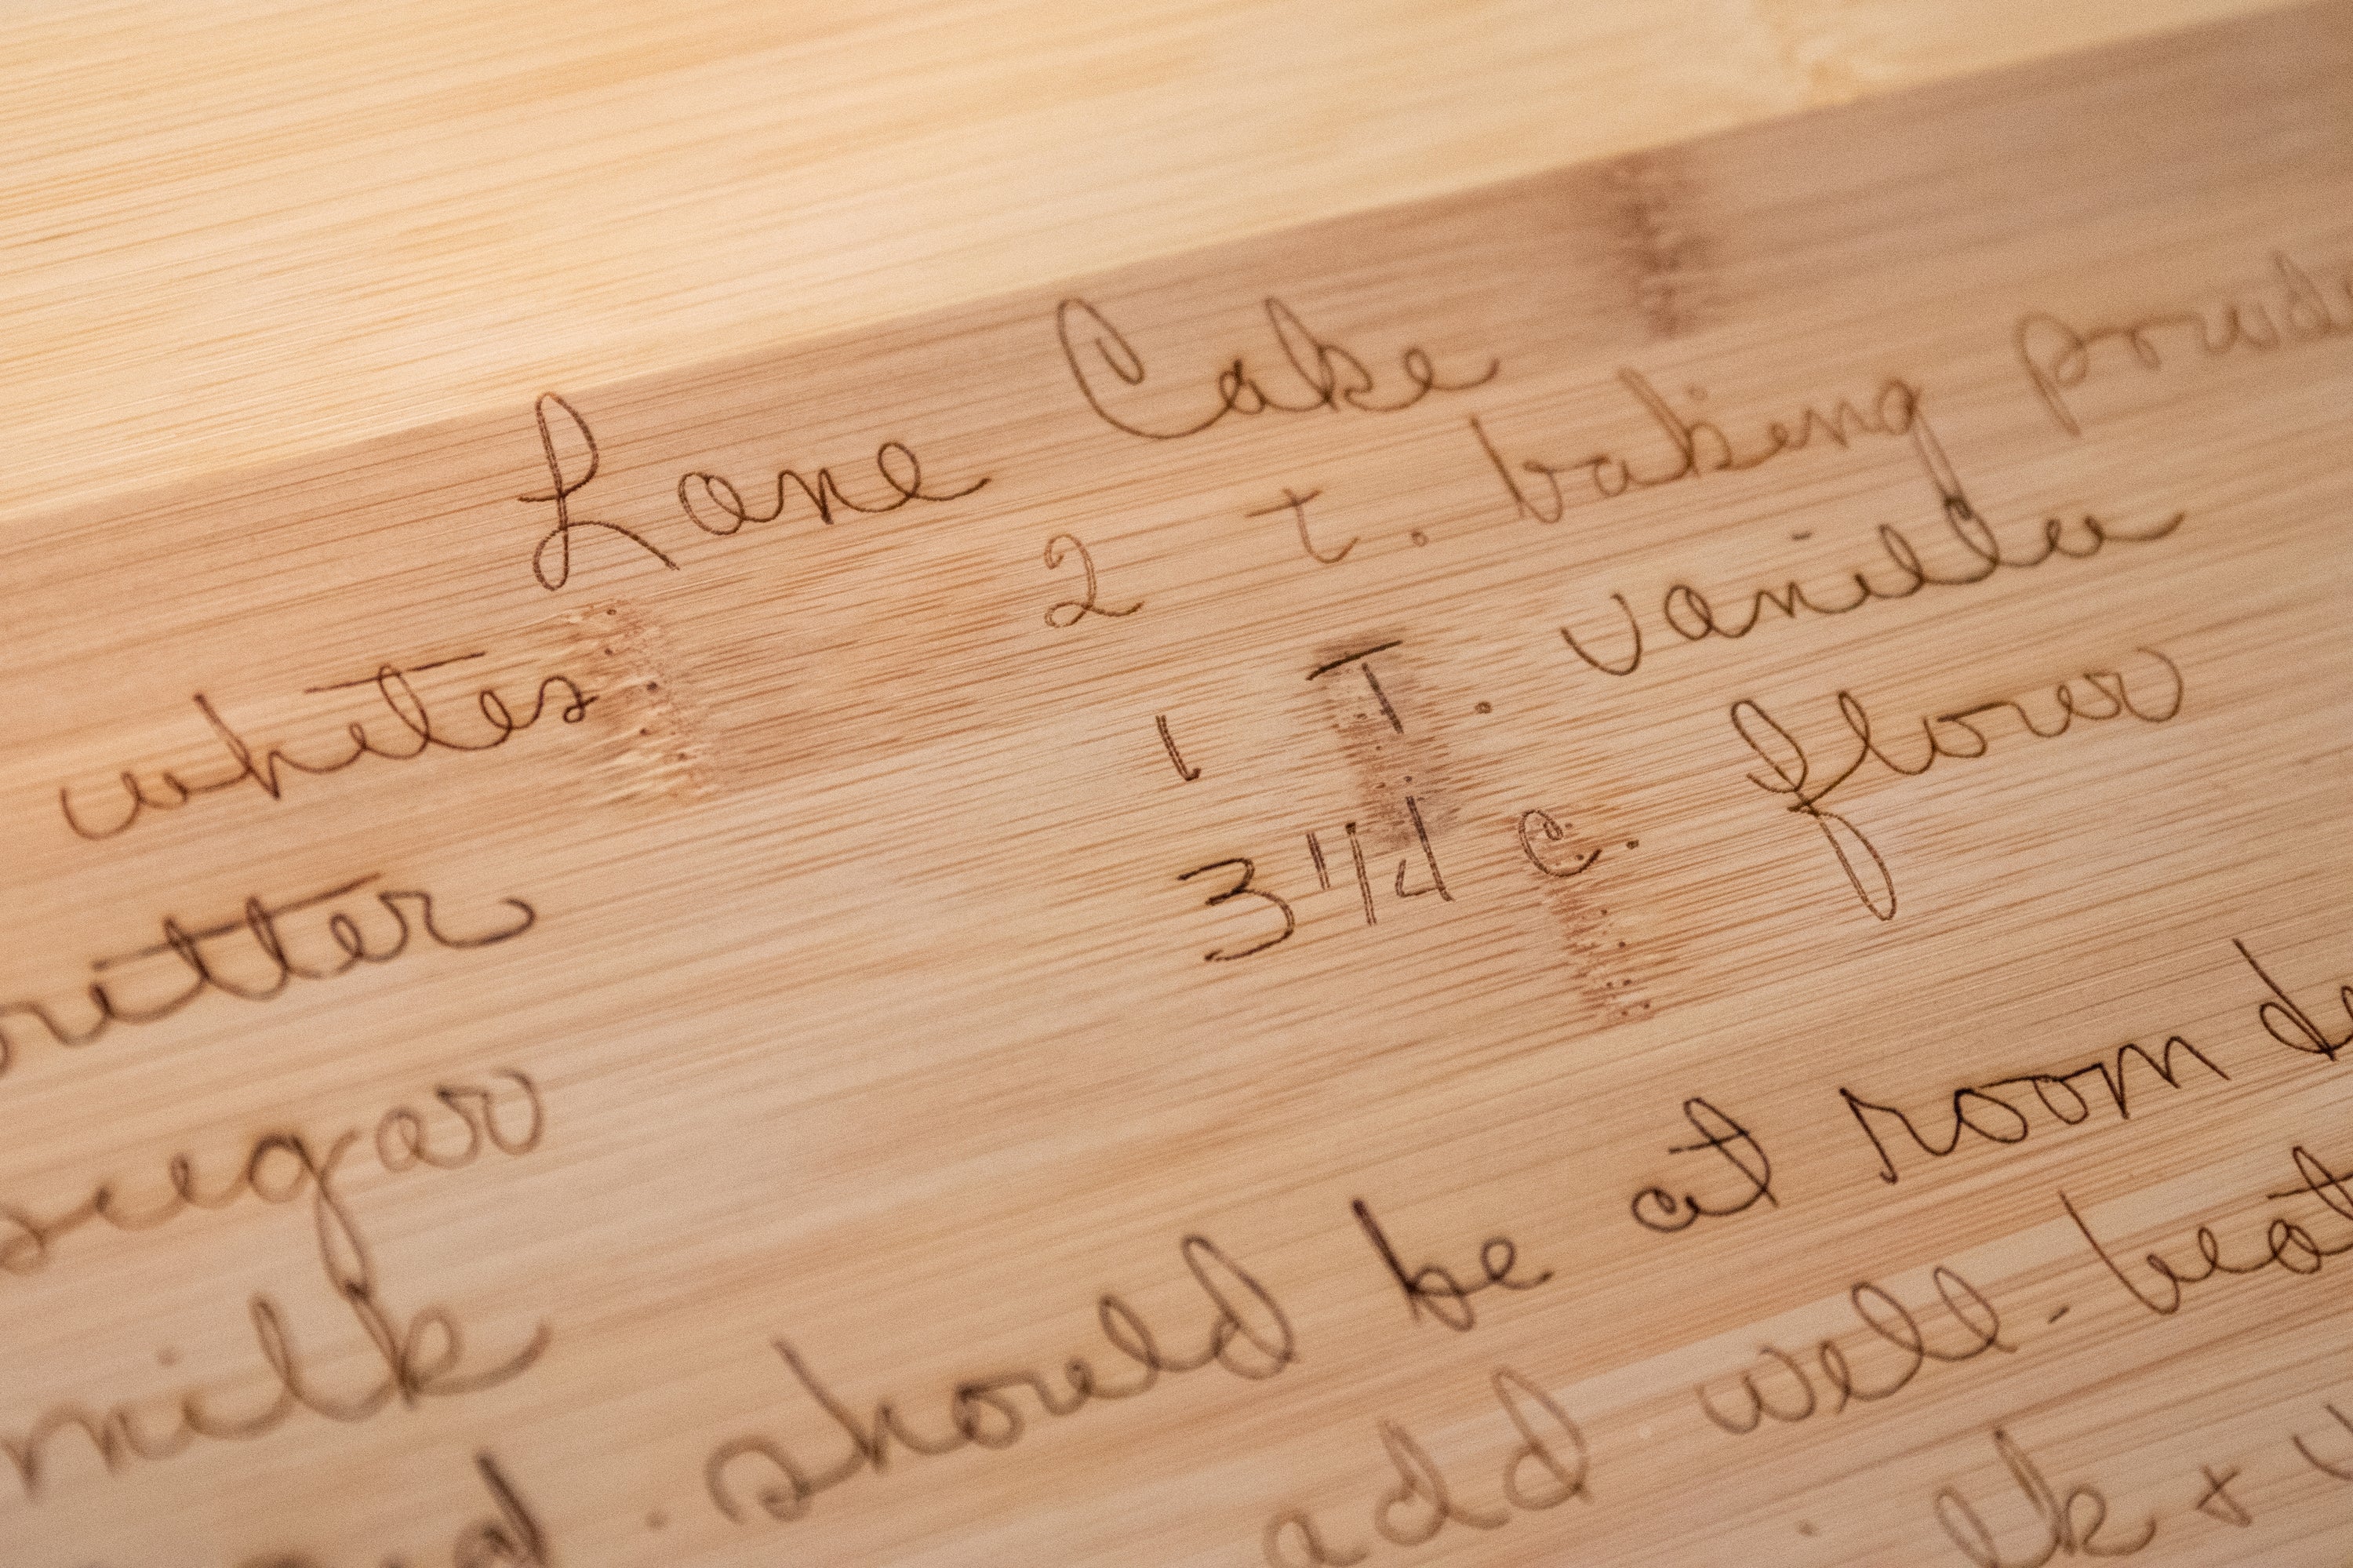 Lane Cake
whites 2 t. baking powde
butter 1 T. vanilla
sugar 3 1/4 c. flour
milk
should be at room
add well - beat